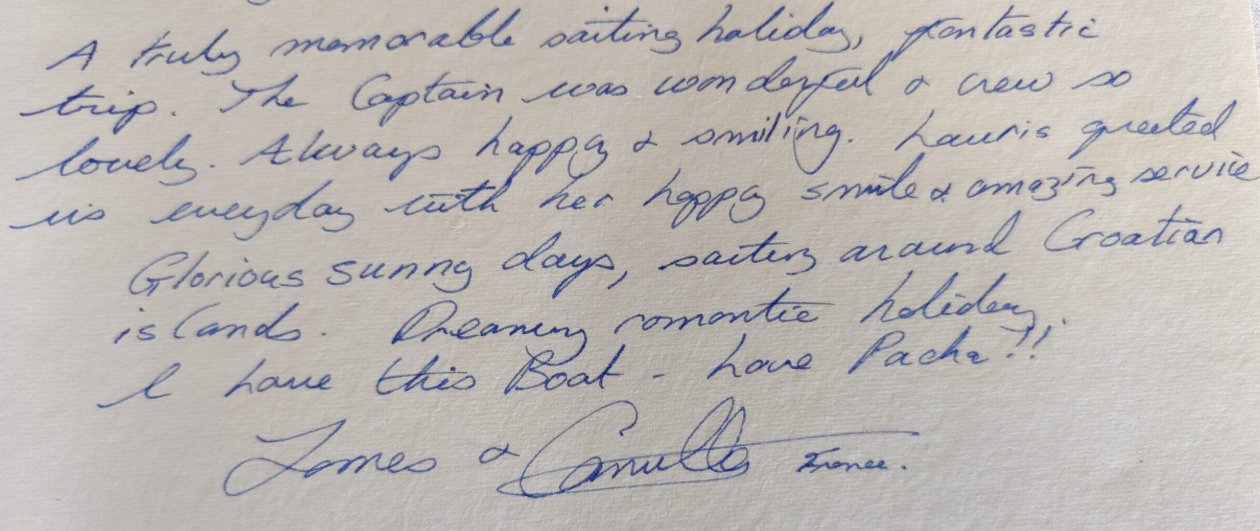 A truly memorable sailing holiday, fantastic
trip. The Captain was wonderful & crew so
lovely. Always happy & smiling. Lauris greeted
us everyday with her happy smile & amazing service
Glorious sunny days, sailing around Croatian
islands. Dreamy romantic holiday.
I love this Boat - Love Pacha!!
James & Camilla France.